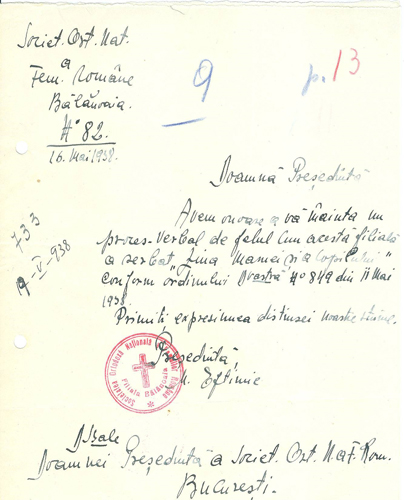 Societ. Ort. Nat.
a
Fem. Române
Bălănoaia.
No 82.
16. Mai 1938.
9
p. 13
733
19-V-938
Doamnă Președintă
Avem onoare a vă înainta un
proces-verbal de felul cum acesta filială
a serbat „Ziua Mamei și a Copilului"
conform ordinului Dvastră No 849 din 11 Mai
1938.
Primiți, expresiunea distinsei noastre stime.
Președintă,
Societatea Ortodoxă Națională a Femeilor Române
Filiala Bălănoaia
M. Eftimie
Dsale
Doamnei Președintă a Societ. Ort. Naț. F. Rom.
București.